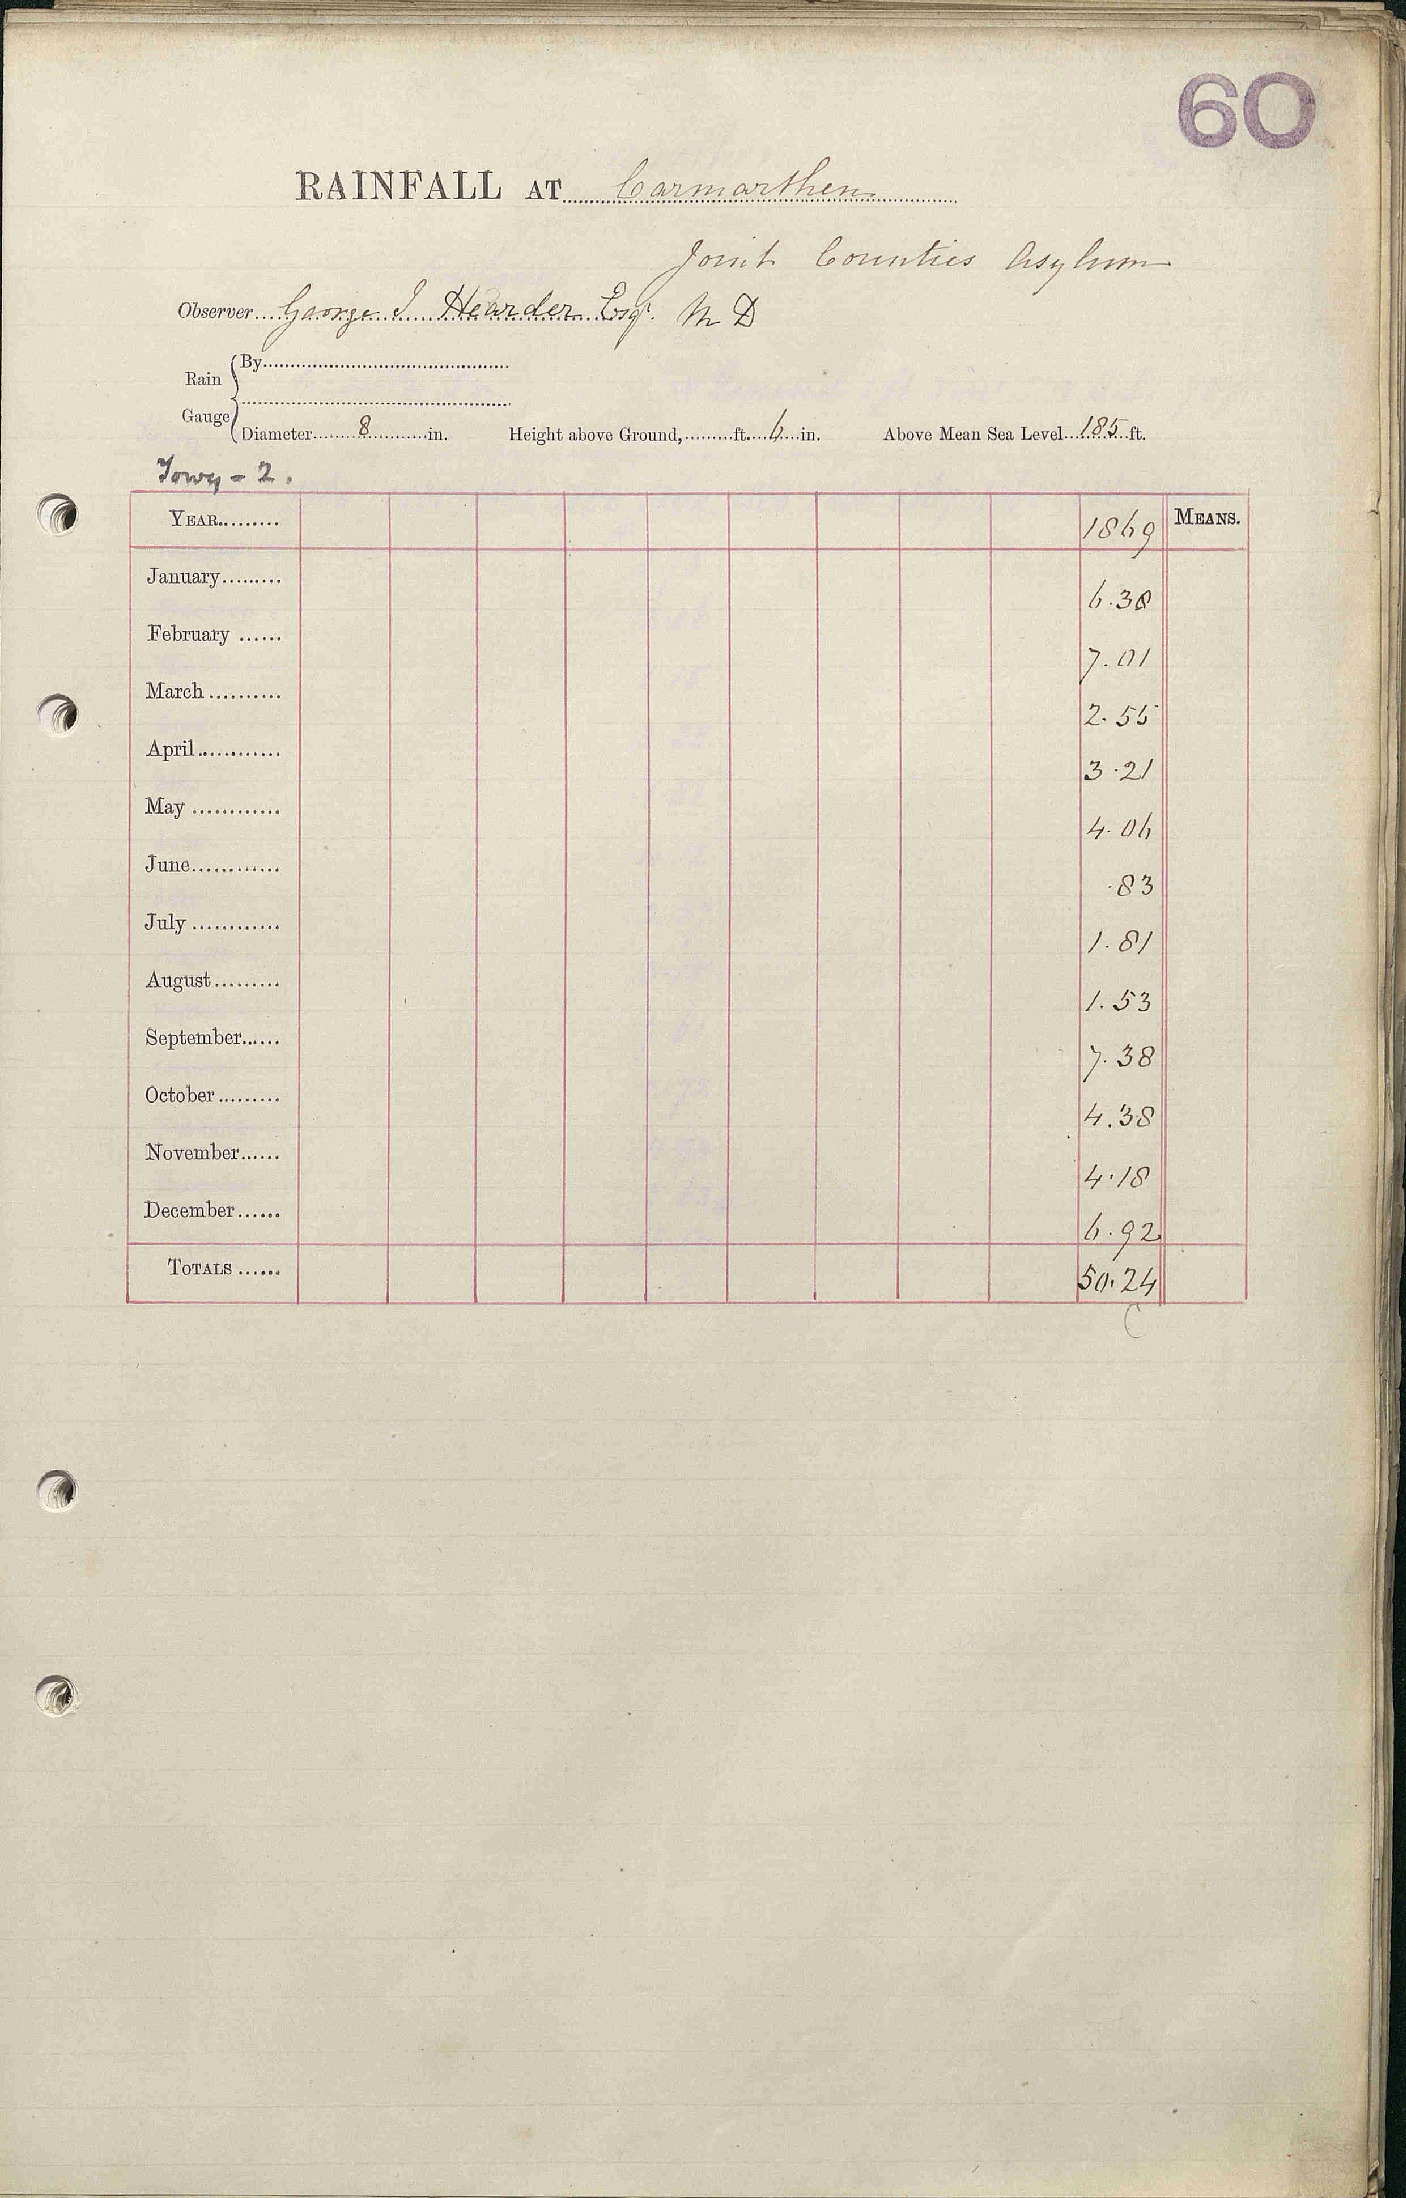 60
RAINFALL AT Carmarthen
Joint Counties Asylum
Observer George J. Hearder Esqr. M D
Rain Gauge
By
Diameter 8 in. Height above Ground, ft. 6 in. Above Mean Sea Level 185 ft.
Towy - 2.
YEAR 1869 MEANS.
January 6.38
February 7.01
March 2.55
April 3.21
May 4.06
June .83
July 1.81
August 1.53
September 7.38
October 4.38
November 4.18
December 6.92
TOTALS 50.24
C